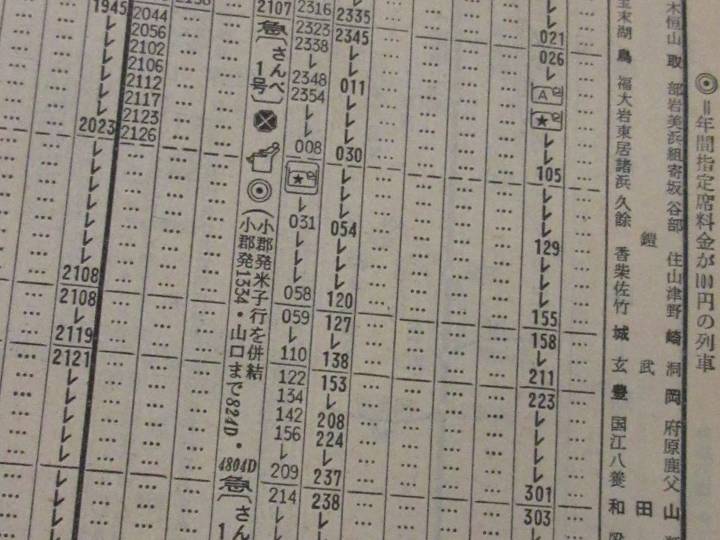 1945
2023
2108
2108
2119
2121
2044
2056
2102
2106
2112
2117
2123
2126
2107
急
(さんべ1号)
(小郡発米子行を併結
小郡発1534・山口まで824D・
4804D
急
(さん
1
2316
2323
2338
2348
2354
008
031
058
059
110
122
134
142
156
209
214
2335
2345
011
030
054
120
127
138
153
208
224
237
238
021
026
A
105
129
155
158
211
223
301
303
木
末恒
湖山
鳥取
福部
大岩
岩美
東浜
居組
諸寄
浜坂
久谷
餘部
鎧
香住
柴山
佐津
竹野
城崎
玄武洞
豊岡
国府
江原
八鹿
養父
和田山
◎=年間指定席料金が100円の列車